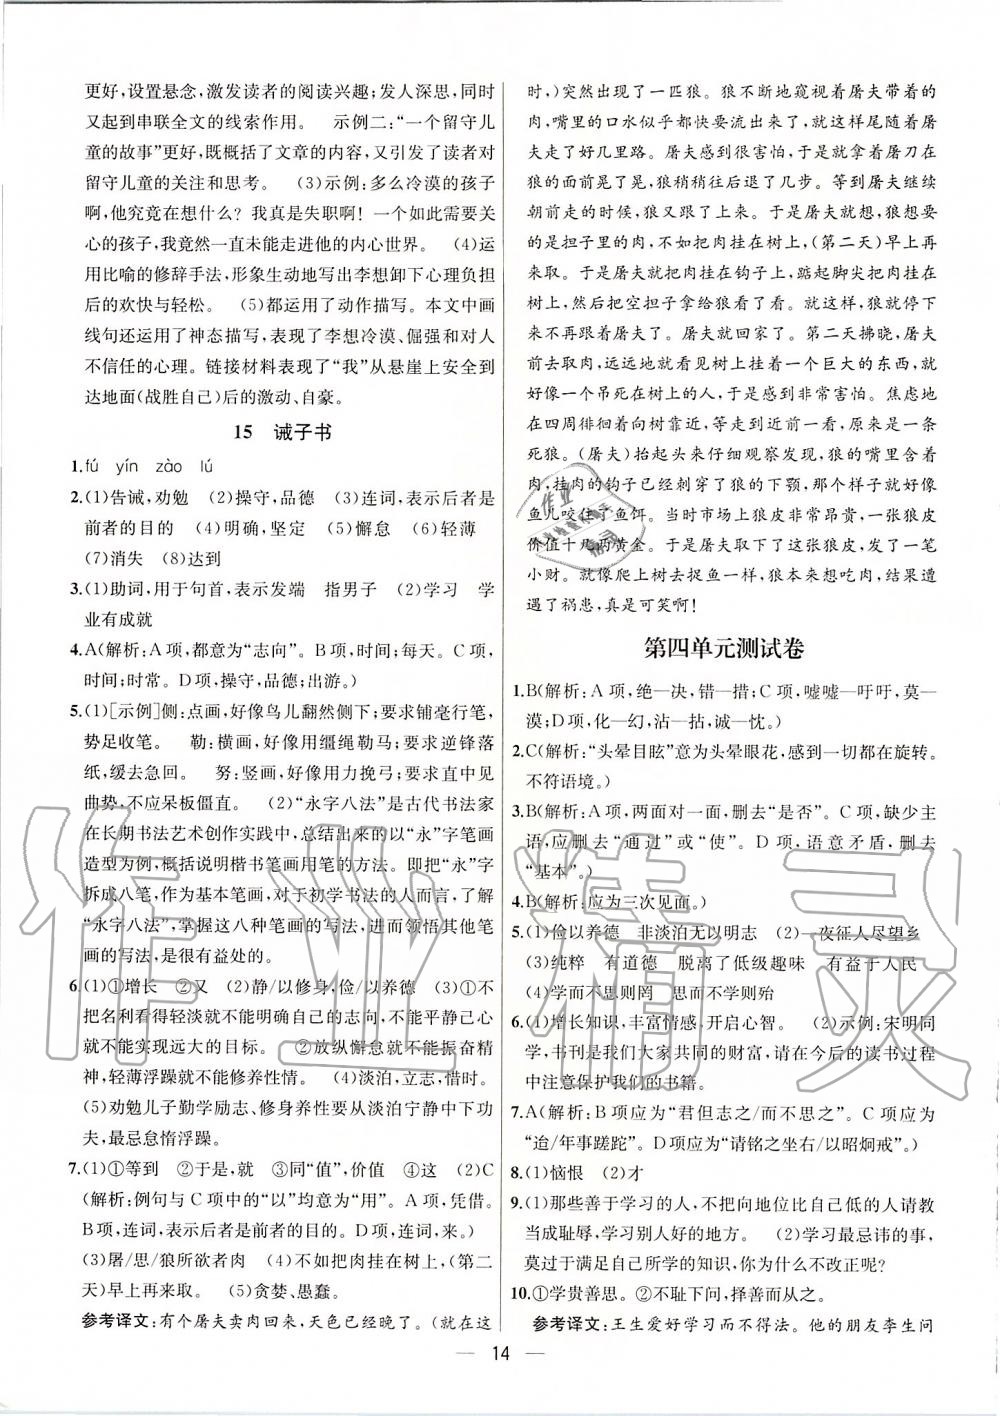 更好,设置悬念,激发读者的阅读兴趣;发人深思,同时
又起到串联全文的线索作用。 示例二:“一个留守儿
童的故事”更好,既概括了文章的内容,又引发了读者对
留守儿童的关注和思考。 (3)示例:多么冷漠的孩子
啊,他究竟在想什么? 我真是失职啊! 一个如此需要关
心的孩子,我竟然一直未能走进他的内心世界。 (4)运
用比喻的修辞手法,形象生动地写出李想卸下心理负担
后的欢快与轻松。 (5)都运用了动作描写。本文中画
线句还运用了神态描写,表现了李想冷漠、倔强和对人
不信任的心理。链接材料表现了“我”从悬崖上安全到
达地面(战胜自己)后的激动、自豪。
15 诫子书
1.fú yín zào lú
2.(1)告诫,劝勉 (2)操守,品德 (3)连词,表示后者是
前者的目的 (4)明确,坚定 (5)懈怠 (6)轻薄
(7)消失 (8)达到
3.(1)助词,用于句首,表示发端 指男子 (2)学习 学
业有成就
4.A(解析:A项,都意为“志向”。B项,时间;每天。C项,
时间;时常。D项,操守,品德;出游。)
5.(1)[示例]侧:点画,好像鸟儿翻然侧下;要求铺毫行笔,
势足收笔。 勒:横画,好像用缰绳勒马;要求逆锋落
纸,缓去急回。 努:竖画,好像用力挽弓;要求直中见
曲势,不应呆板僵直。 (2)“永字八法”是古代书法家
在长期书法艺术创作实践中,总结出来的以“永”字笔画
造型为例,概括说明楷书笔画用笔的方法。即把“永”字
拆成八笔,作为基本笔画,对于初学书法的人而言,了解
“永字八法”,掌握这八种笔画的写法,进而领悟其他笔
画的写法,是很有益处的。
6.(1)①增长 ②又 (2)静/以修身,俭/以养德 (3)①不
把名利看得轻淡就不能明确自己的志向,不能平静己心
就不能实现远大的目标。 ②放纵懈怠就不能振奋精
神,轻薄浮躁就不能修养性情。 (4)淡泊,立志,惜时。
(5)劝勉儿子勤学励志、修身养性要从淡泊宁静中下功
夫,最忌怠惰浮躁。
7.(1)①等到 ②于是,就 ③同“值”,价值 ④这 (2)C
(解析:例句与C项中的“以”均意为“用”。A项,凭借。
B项,连词,表示后者是前者的目的。D项,连词,来。)
(3)屠/思/狼所欲者肉 (4)不如把肉挂在树上,(第二
天)早上再来取。 (5)贪婪、愚蠢。
参考译文:有个屠夫卖肉回来,天色已经晚了。(就在这
时,)突然出现了一匹狼。狼不断地窥视着屠夫带着的
肉,嘴里的口水似乎都快要流出来了,就这样尾随着屠
夫走了好几里路。屠夫感到很害怕,于是就拿着屠刀在
狼的面前晃了晃,狼稍稍往后退了几步。等到屠夫继续
朝前走的时候,狼又跟了上来。于是屠夫就想,狼想要
的是担子里的肉,不如把肉挂在树上,(第二天)早上再
来取。于是屠夫就把肉挂在钩子上,踮起脚尖把肉挂在
树上,然后把空担子拿给狼看了看。就这样,狼就停下
来不再跟着屠夫了。屠夫就回家了。第二天拂晓,屠夫
前去取肉,远远地就看见树上挂着一个巨大的东西,就
好像一个吊死在树上的人,于是感到非常害怕。焦虑地
在四周徘徊着向树靠近,等走到近前一看,原来是一条
死狼。(屠夫)抬起头来仔细观察发现,狼的嘴里含着
肉,挂肉的钩子已经刺穿了狼的下颚,那个样子就好像
鱼儿咬住了鱼饵。当时市场上狼皮非常昂贵,一张狼皮
价值十几两黄金。于是屠夫取下了这张狼皮,发了一笔
小财。就像爬上树去捉鱼一样,狼本来想吃肉,结果遭
遇了祸患,真是可笑啊!
第四单元测试卷
1.B(解析:A项,绝—决,错—措;C项,嘘嘘—吁吁,莫—
漠;D项,化—幻,沾—拈,诚—忱。)
2.C(解析:“头晕目眩”意为头晕眼花,感到一切都在旋转。
不符语境。)
3.B(解析:A项,两面对一面,删去“是否”。C项,缺少主
语,应删去“通过”或“使”。D项,语意矛盾,删去
“基本”。)
4.B(解析:应为三次见面。)
5.(1)俭以养德 非淡泊无以明志 (2)一夜征人尽望乡
(3)纯粹 有道德 脱离了低级趣味 有益于人民
(4)学而不思则罔 思而不学则殆
6.(1)增长知识,丰富情感,开启心智。 (2)示例:宋明同
学,书刊是我们大家共同的财富,请在今后的读书过程
中注意保护我们的书籍。
7.A(解析:B项应为“君但志之/而不思之”。C项应为
“迨/年事蹉跎”。D项应为“请铭之坐右/以昭炯戒”。)
8.(1)恼恨 (2)才
9.(1)那些善于学习的人,不把向地位比自己低的人请教
当成耻辱,学习别人好的地方。 (2)学习最忌讳的事,
莫过于满足自己所学的知识,你为什么不改正呢?
10.①学贵善思。②不耻下问,择善而从之。
参考译文:王生爱好学习而不得法。他的朋友李生问
14
作业精灵